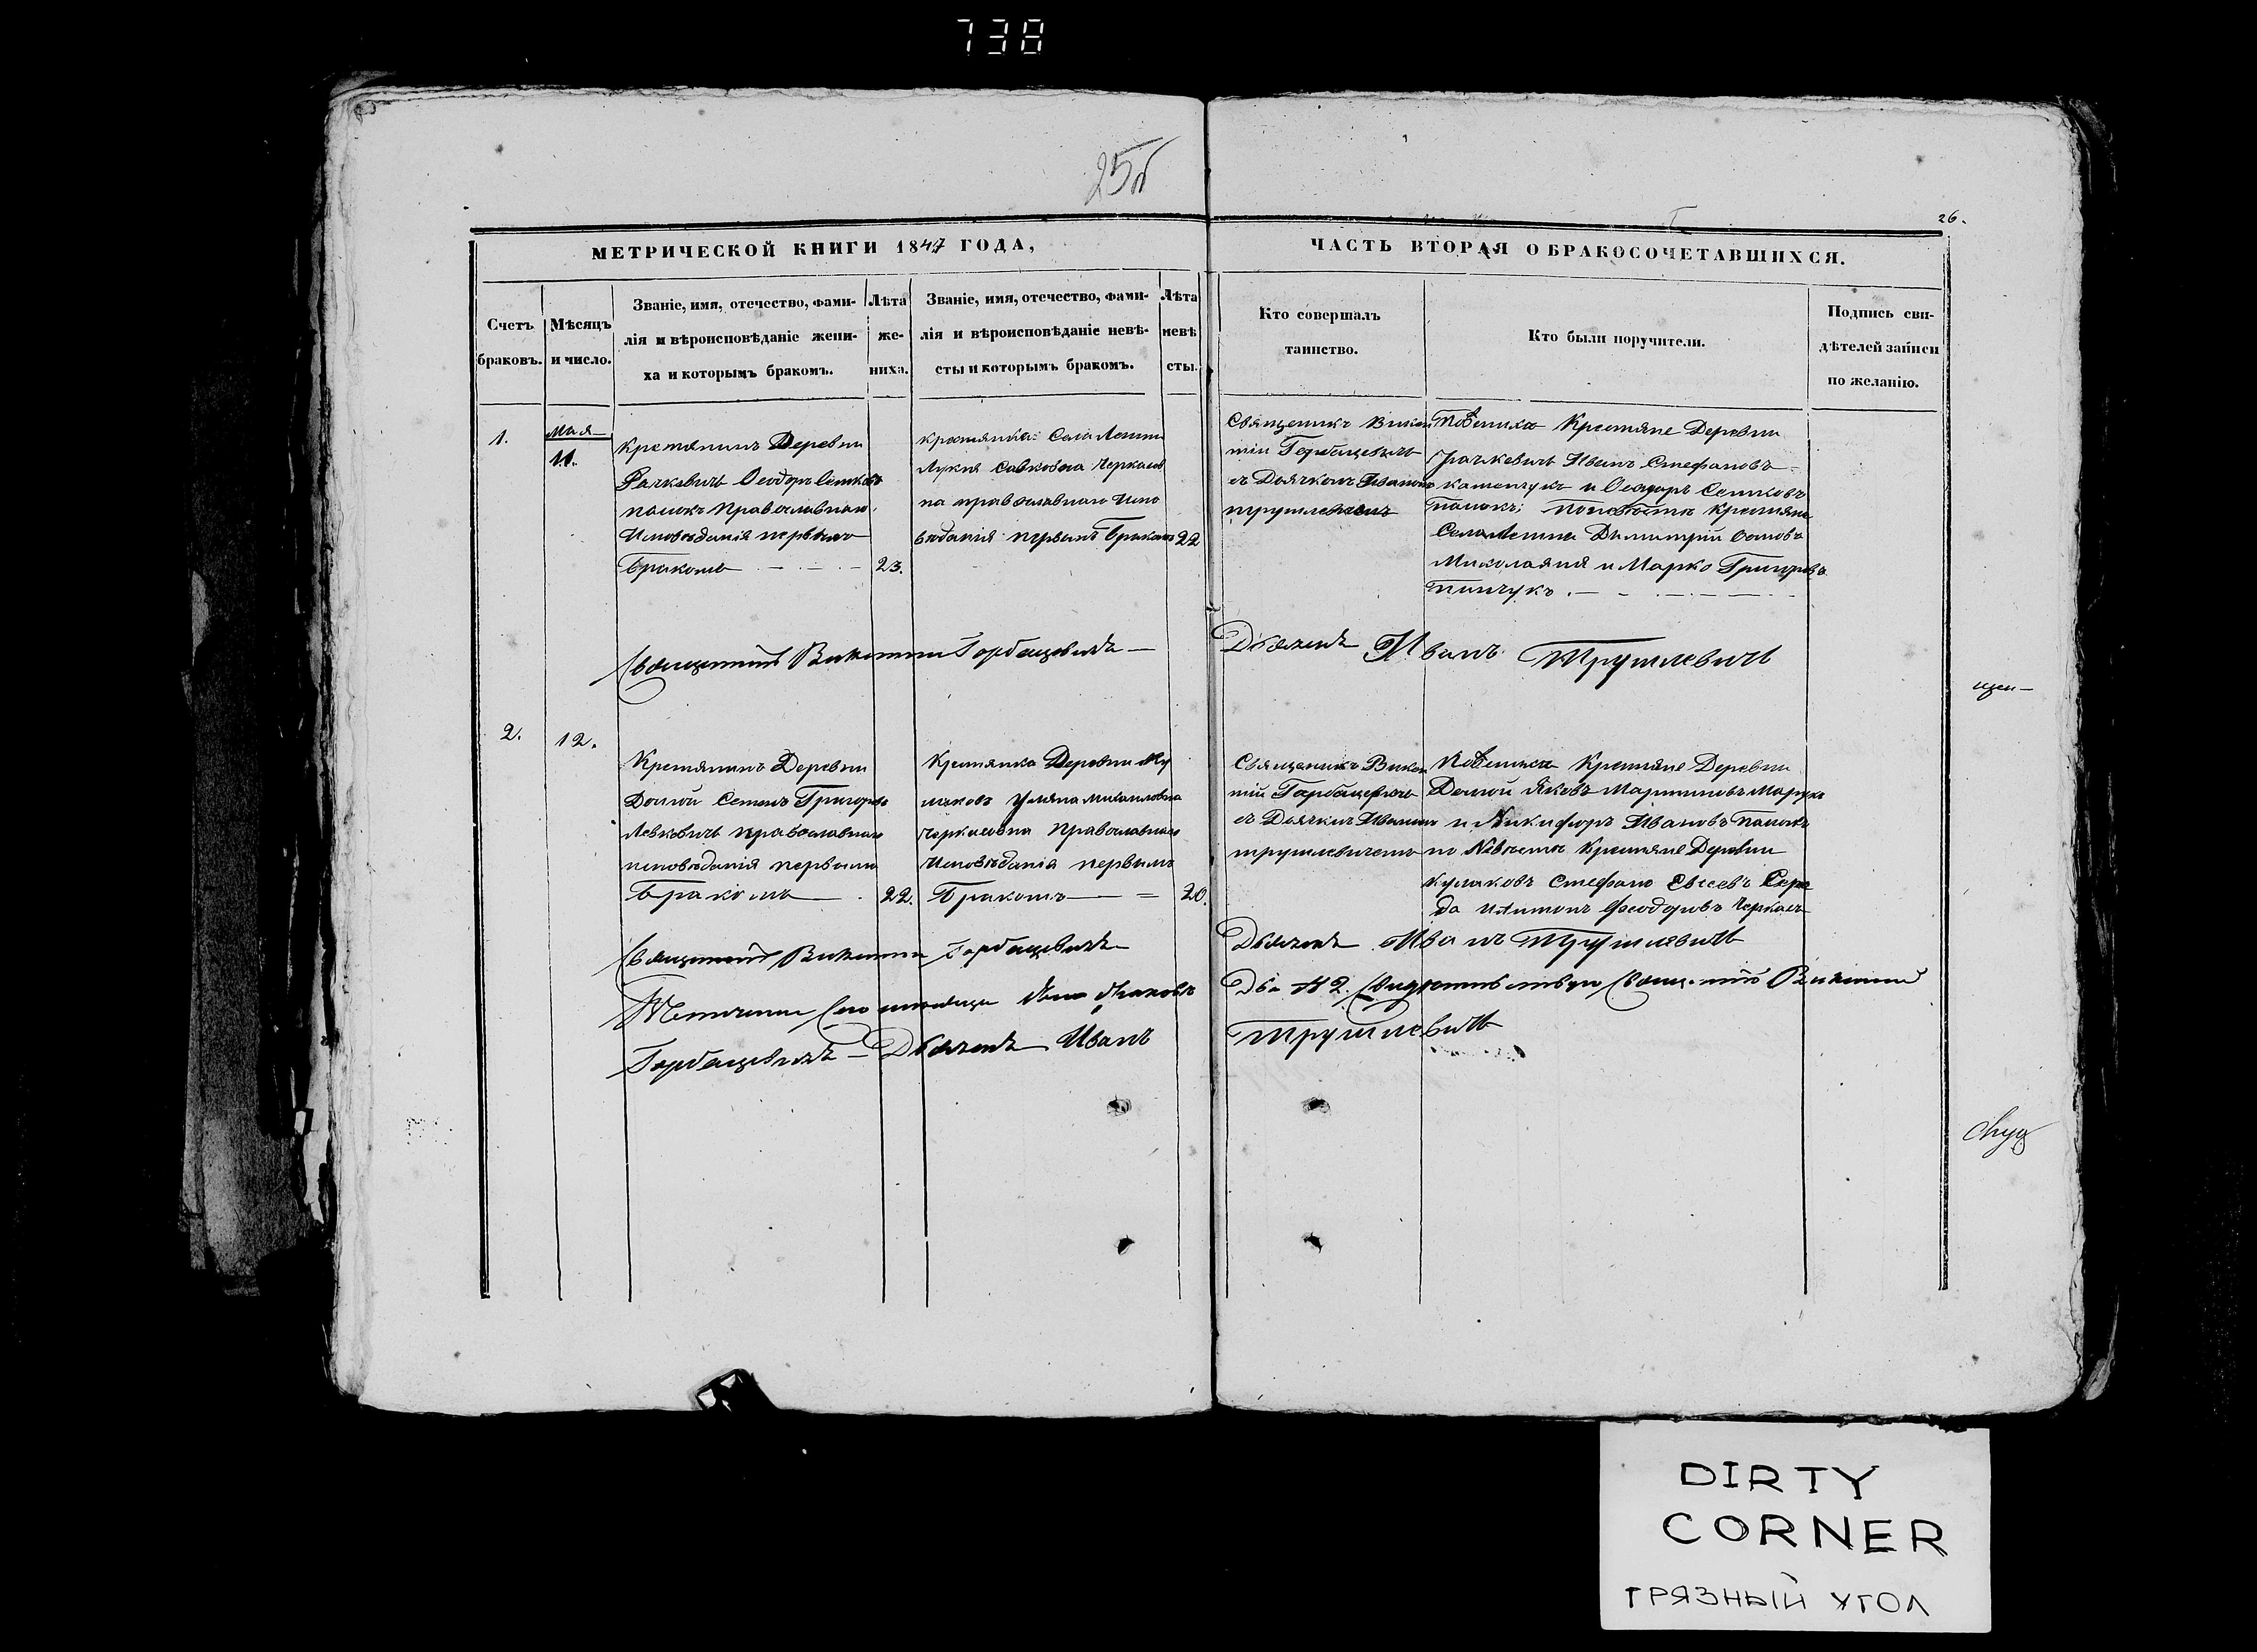 738
25б
26.
МЕТРИЧЕСКОЙ КНИГИ 1847 ГОДА,
ЧАСТЬ ВТОРАЯ О БРАКОСОЧЕТАВШИХСЯ.
Счетъ
браковъ.
Мѣсяцъ
и число.
Званіе, имя, отечество, фами-
лія и вѣроисповѣданіе жени-
ха и которымъ бракомъ.
Лѣта
же-
ниха.
Званіе, имя, отечество, фами-
лія и вѣроисповѣданіе невѣ-
сты и которымъ бракомъ.
Лѣта
невѣ
сты.
Кто совершалъ
таинство.
Кто были поручители.
Подпись сви-
дѣтелей записи
по желанію.
1.
Мая
11.
Крестянинъ Деревни
Рачкевичъ Ѳеодоръ
Православнаго
Исповѣданія первымъ
Бракомъ
23.
Крестянка Села
Лукия Савковна
на православнаго Испо
вѣданія первымъ Бракомъ
22
Священикъ Викен
тій Горбацевичъ
съ Дьячкомъ Иваномъ
трушлевичемъ
По Женихѣ Крестяне Деревни
Рачкевичъ Иванъ Стефановъ
и Ѳеодоръ
по невѣсте Крестяне
Села Димитрий
и Марко Григоревъ
Священникъ Викентий Горбацевичъ
Дьячекъ Иванъ Трушлевичъ
2.
12.
Крестянинъ Деревни
Долгой Семенъ Григоревъ
Левковичъ православнаго
исповѣданія первымъ
Бракомъ
22.
Крестянка Деревни Ку
лаковъ Уляна Михаиловна
Черкасовна Православнаго
Исповѣданія первымъ
Бракомъ
20.
Священикъ Викен
тій Горбацевичъ
съ Дьячкомъ Иваномъ
трушлевичемъ
По Женихѣ Крестяне Деревни
Долгой Яковъ Мартиновъ
и Никифоръ Ивановъ
по Невѣсте Крестяне Деревни
Кулаковъ Стефанъ Евсеевъ Сере
да Феодоровъ Черкасъ
Священникъ Викентий Горбацевичъ
Дьячекъ Иванъ Трушлевичъ
браковъ
Два № 2. Викентий
Горбацевичъ - Дьячекъ Иванъ
Трушлевичъ
щен-
DIRTY
CORNER
ГРЯЗНЫЙ УГОЛ